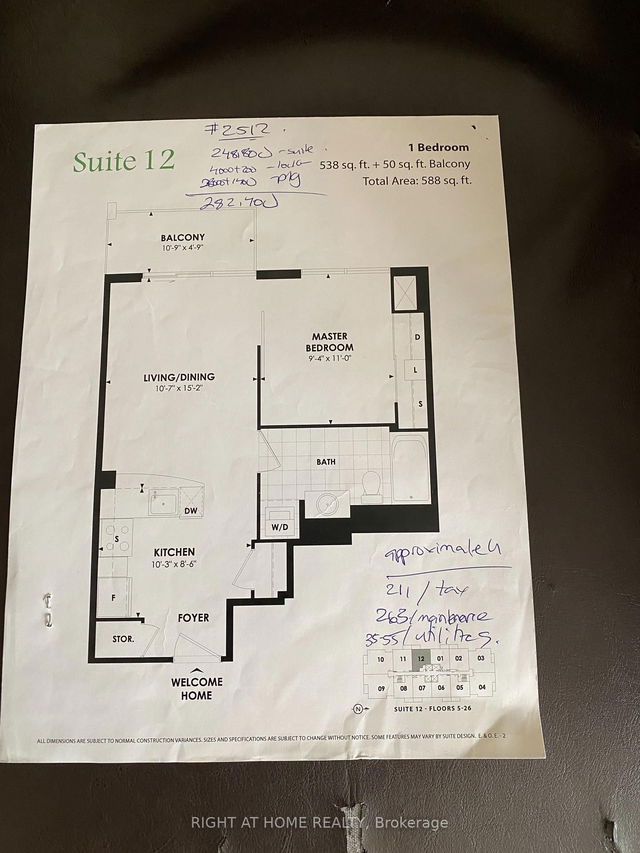 #2512.
Suite 12
248,800 - suite.
4000+200 - lock
- pkg
282,700
1 Bedroom
538 sq. ft. + 50 sq. ft. Balcony
Total Area: 588 sq. ft.
BALCONY
10'-9" x 4'-9"
MASTER
BEDROOM
9'-4" x 11'-0"
D
L
S
LIVING/DINING
10'-7" x 15'-2"
BATH
DW
W/D
S
KITCHEN
10'-3" x 8'-6"
F
FOYER
STOR.
WELCOME
HOME
approximately
211 / tax
263/maintenance
35-55/utilities.
10 11 12 01 02 03
09 08 07 06 05 04
N
SUITE 12 · FLOORS 5-26
ALL DIMENSIONS ARE SUBJECT TO NORMAL CONSTRUCTION VARIANCES. SIZES AND SPECIFICATIONS ARE SUBJECT TO CHANGE WITHOUT NOTICE. SOME FEATURES MAY VARY BY SUITE DESIGN. E. & O. E. - 2
RIGHT AT HOME REALTY, Brokerage